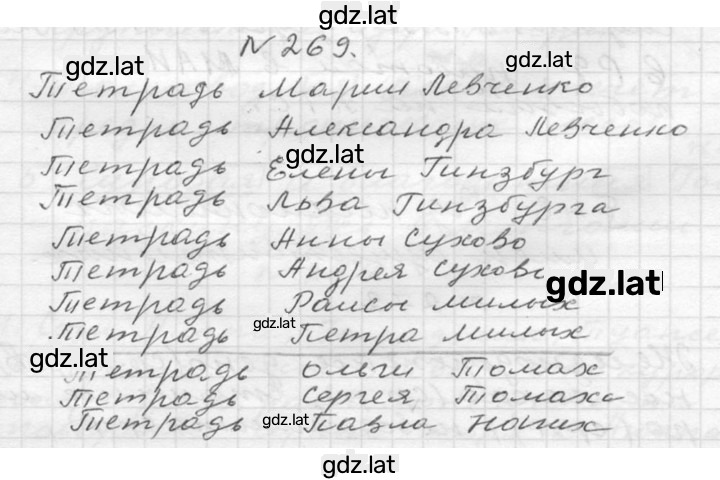 gdz.lat
N 269.
gdz.lat
gdz.lat
Тетрадь Марии Левченко
Тетрадь Александра Левченко
gdz.lat
Тетрадь Елены Гинзбург
Тетрадь Льва Гинзбурга
Тетрадь Анны Сухово
Тетрадь Андрея Сухово
gdz.lat
Тетрадь Раисы Милых
gdz.lat
Тетрадь Петра Милых
gdz.lat
Тетрадь Ольги Томах
Тетрадь Сергея Томаха
gdz.lat
Тетрадь Павла
gdz.lat